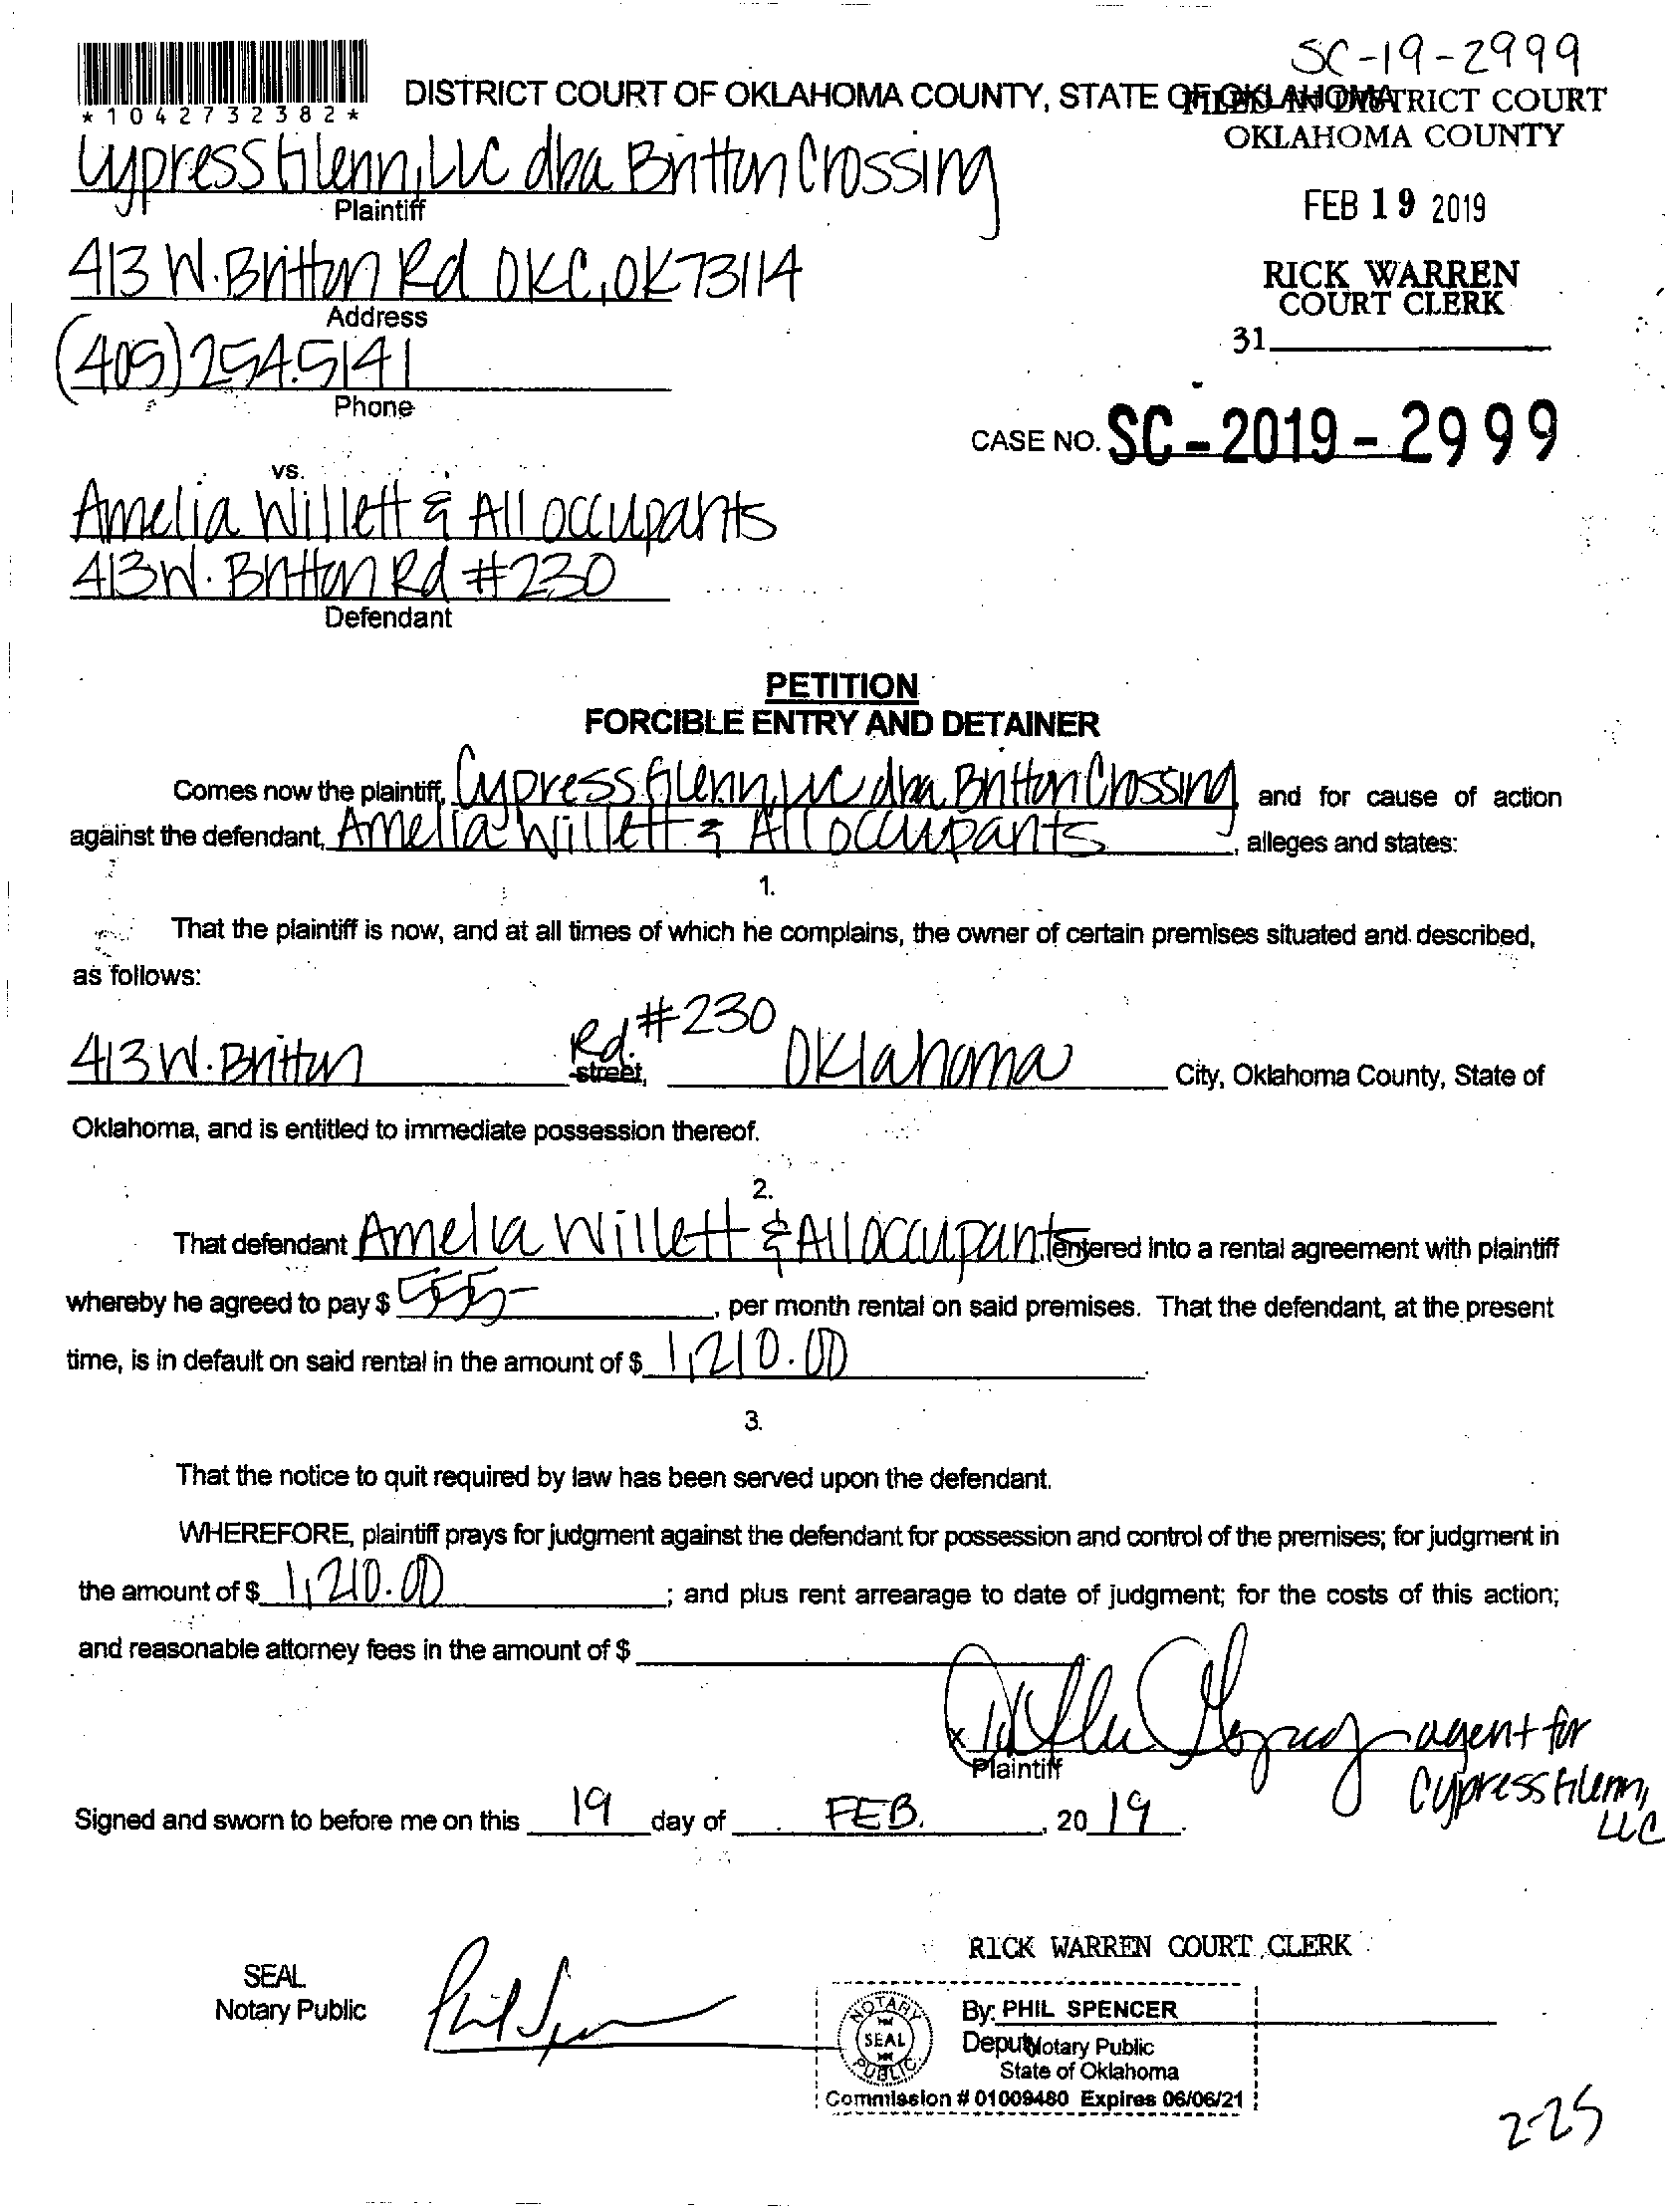 SC-19-2999
*1042732382*
DISTRICT COURT OF OKLAHOMA COUNTY, STATE OF OKLAHOMA
FILED IN DISTRICT COURT
OKLAHOMA COUNTY
Cypress Glenn, LLC dba Britton Crossing
Plaintiff
FEB 19 2019
413 W. Britton Rd OKC, OK 73114
Address
RICK WARREN
COURT CLERK
31
(405) 254.5141
Phone
CASE NO. SC-2019-2999
vs.
Amelia Willett & All occupants
413 W. Britton Rd #230
Defendant
PETITION
FORCIBLE ENTRY AND DETAINER
Comes now the plaintiff, Cypress Glenn, LLC dba Britton Crossing and for cause of action
against the defendant, Amelia Willett & All occupants, alleges and states:
1.
That the plaintiff is now, and at all times of which he complains, the owner of certain premises situated and described,
as follows:
413 W. Britton Rd. #230 street, Oklahoma City, Oklahoma County, State of
Oklahoma, and is entitled to immediate possession thereof.
2.
That defendant Amelia Willett & All occupants entered into a rental agreement with plaintiff
whereby he agreed to pay $ 555-, per month rental on said premises. That the defendant, at the present
time, is in default on said rental in the amount of $ 1,210.00.
3.
That the notice to quit required by law has been served upon the defendant.
WHEREFORE, plaintiff prays for judgment against the defendant for possession and control of the premises; for judgment in
the amount of $ 1,210.00; and plus rent arrearage to date of judgment; for the costs of this action;
and reasonable attorney fees in the amount of $
x agent for
Plaintiff
Cypress Glenn,
LLC
Signed and sworn to before me on this 19 day of FEB., 20 19.
RICK WARREN COURT CLERK
SEAL
Notary Public
Phil Spencer
NOTARY
SEAL
PUBLIC
By: PHIL SPENCER
Deputy Notary Public
State of Oklahoma
Commission # 01009480 Expires 06/06/21
2-25